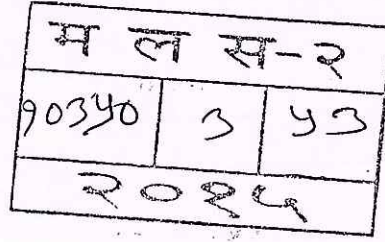 म ल स-२
१०३५० ३ ५३
२०१५